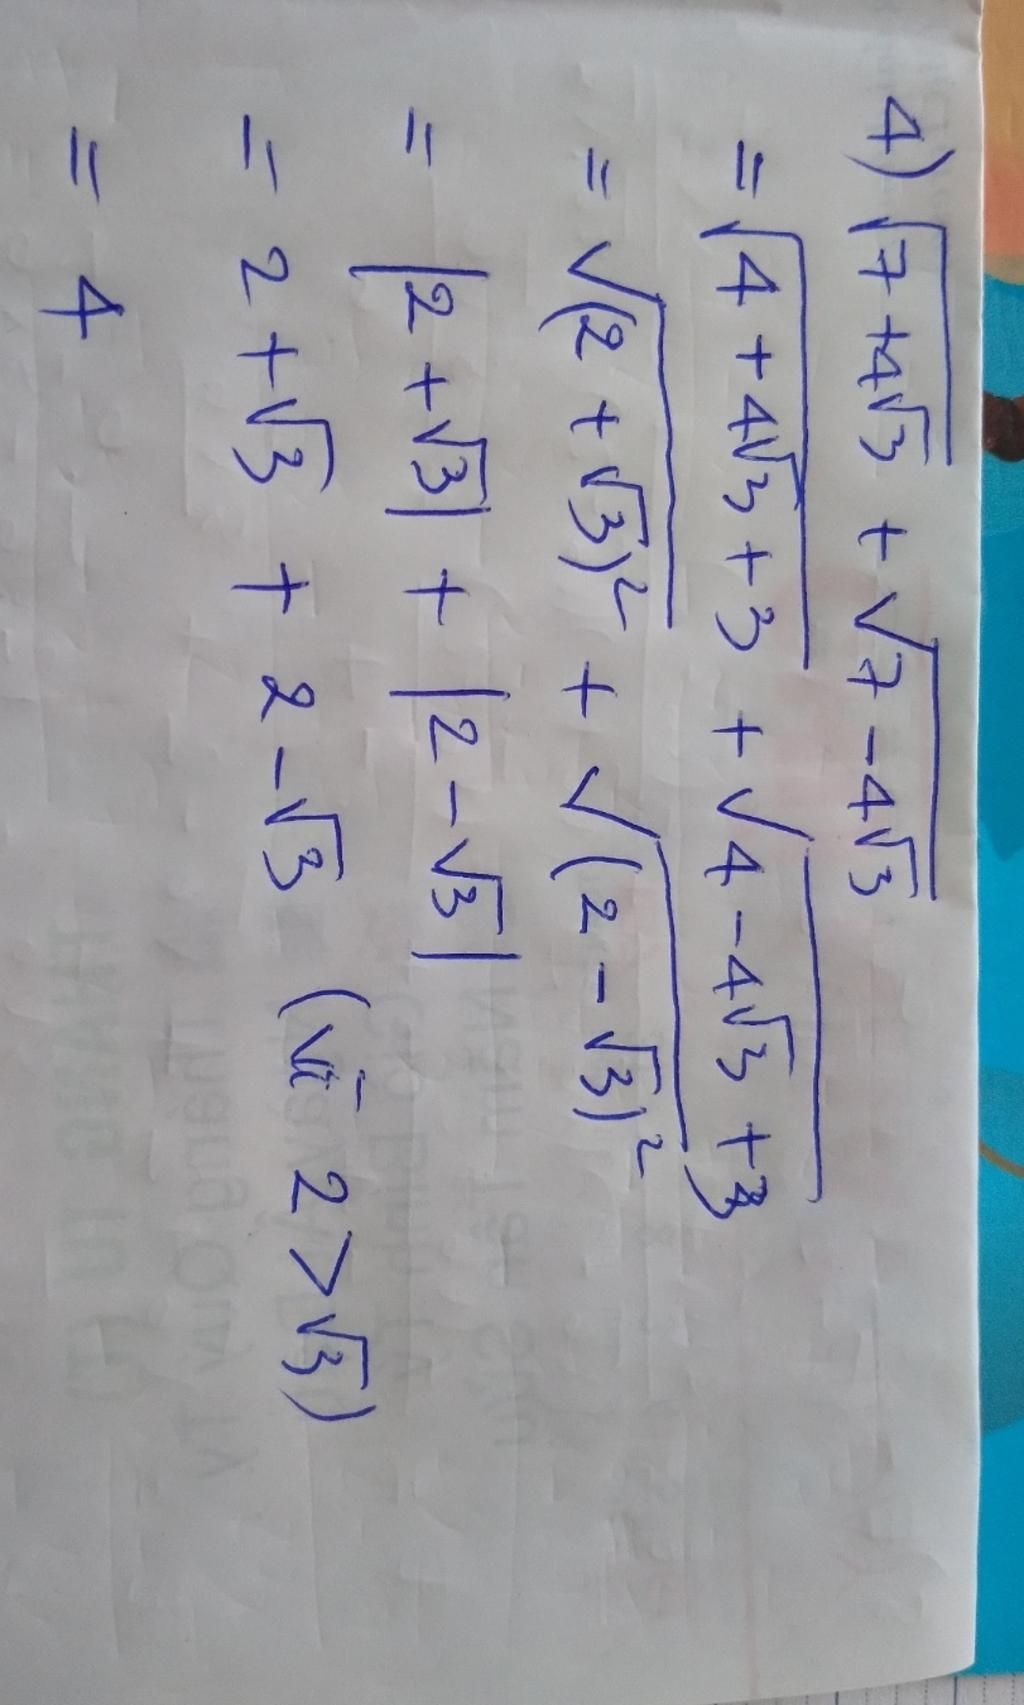 4) √(7 + 4√3) + √(7 - 4√3)
= √(4 + 4√3 + 3) + √(4 - 4√3 + 3)
= √((2 + √3)²) + √((2 - √3)²)
= |2 + √3| + |2 - √3|
= 2 + √3 + 2 - √3 (vì 2 > √3)
= 4